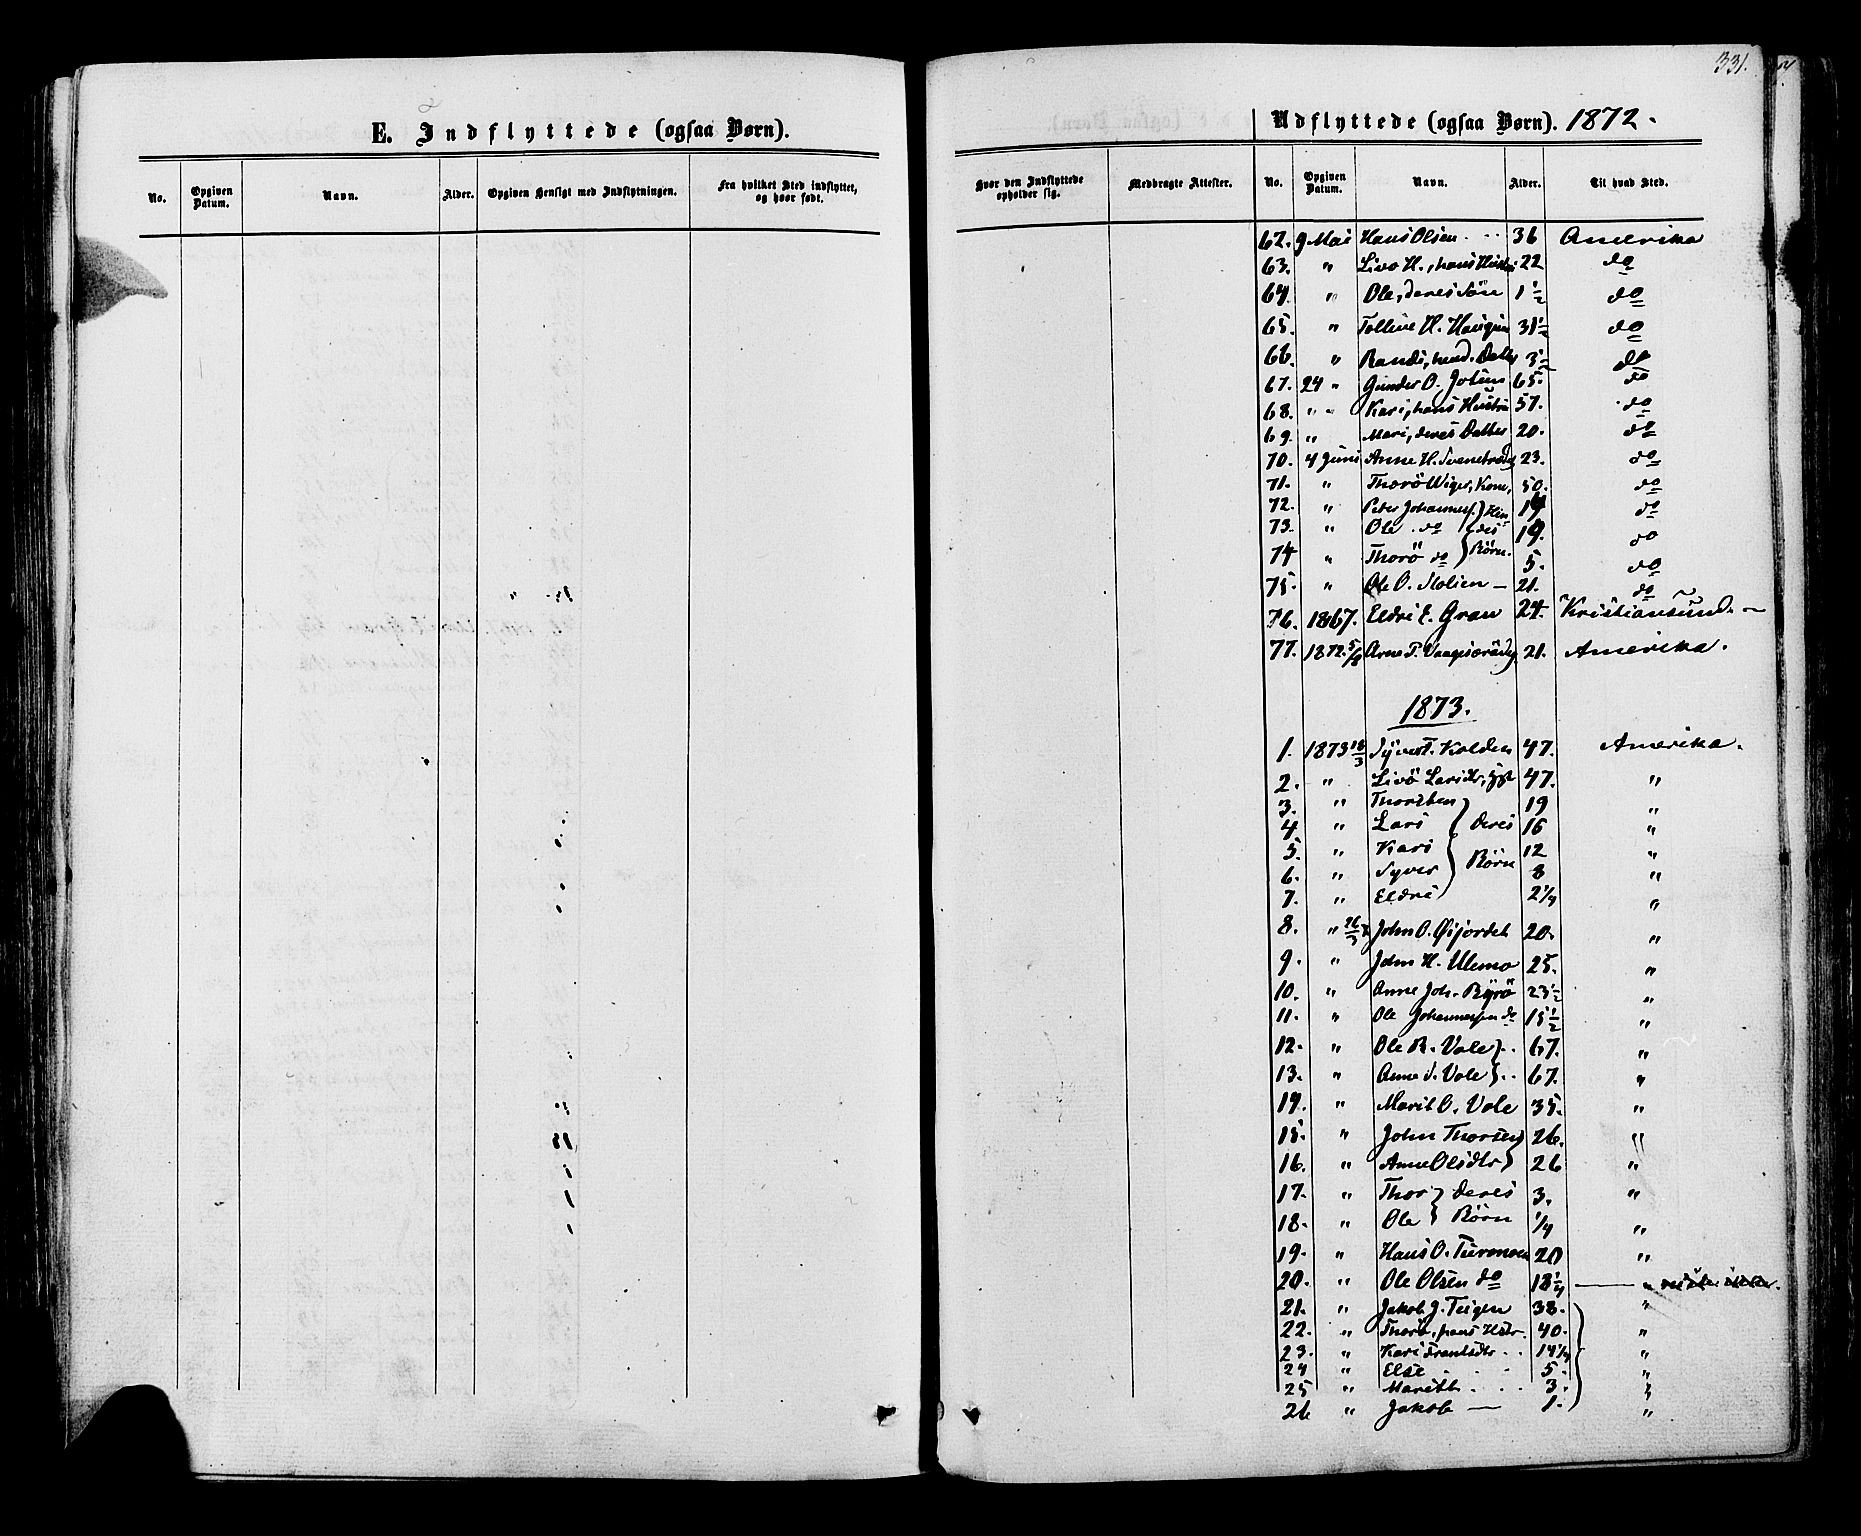 331.
E. Indflyttede (ogsaa Børn).
No. Opgiven Datum. Navn. Alder. Opgiven Hensigt med Indflytningen. Fra hvilket Sted indflyttet, og hvor født.
Udflyttede (ogsaa Børn). 1872.
Hvor den Indflyttede opholder sig. Medbragte Attester. No. Opgiven Datum. Navn. Alder. Til hvad Sted.
62. 9 Mai Hans Olsen 36 Amerika
63. " Livo H., hans Hustru 22 do
64. " Ole, deres Søn 1 1/2 do
65. " H. 31 1/2 do
66. " Randi, hend. Datter do
67. 24 " Gunder O. 65. do
68. " " Kari, hans Hustru 57. do
69. " Mari, deres Datter 20. do
70. 4 Juni Anne H. 23. do
71. " Thorö Kone, 50. do
72. " Peder Johannes. } Hen do
73. " Ole do } des 19. do
74 " Thorö do } Børn. 5. do
75. " Ole O. Stolien — 21. do
76. 1867. Eldri E. Gran 24. Kristiansund. —
77. 1872. 5/9 Arne T. 21. Amerika.
1873.
1. 1873 18/3 Syver T. Kolden 47. Amerika.
2. " Livö Larsdtr, 47. "
3. " Thorsten 19 "
4 " Lars } deres 16 "
5. " Kari } Børn 12 "
6. " Syver 8 "
7. " Eldri 2 1/4 "
8. " 26/3 John O. Øijordet 20. "
9. " John H. Ulemo 25. "
10. " Anne Joh. Byrö 23 1/2 "
11. " Ole Johannessen do 15 1/2 "
12. " Ole R. Vole } 67. "
13. " Anne S. Vole } 67. "
14. " Marit O. Vole 35. "
15. " John Thorsen } 26. "
16. " Anne Olsdtr } 26 "
17. " Thor } deres 3. "
18. " Ole } Børn 1/4 "
19. " Hans O. 20 "
20. " Ole Olsen do 18 1/4 — "
21. " Jakob J. Teigen 38. "
22. " Thorö, hans Hstr. 40. "
23. " Kari Frantsdtr 14 1/4 "
24 " Else 5. "
25 " Marith 3. "
26 " Jakob — 1. "